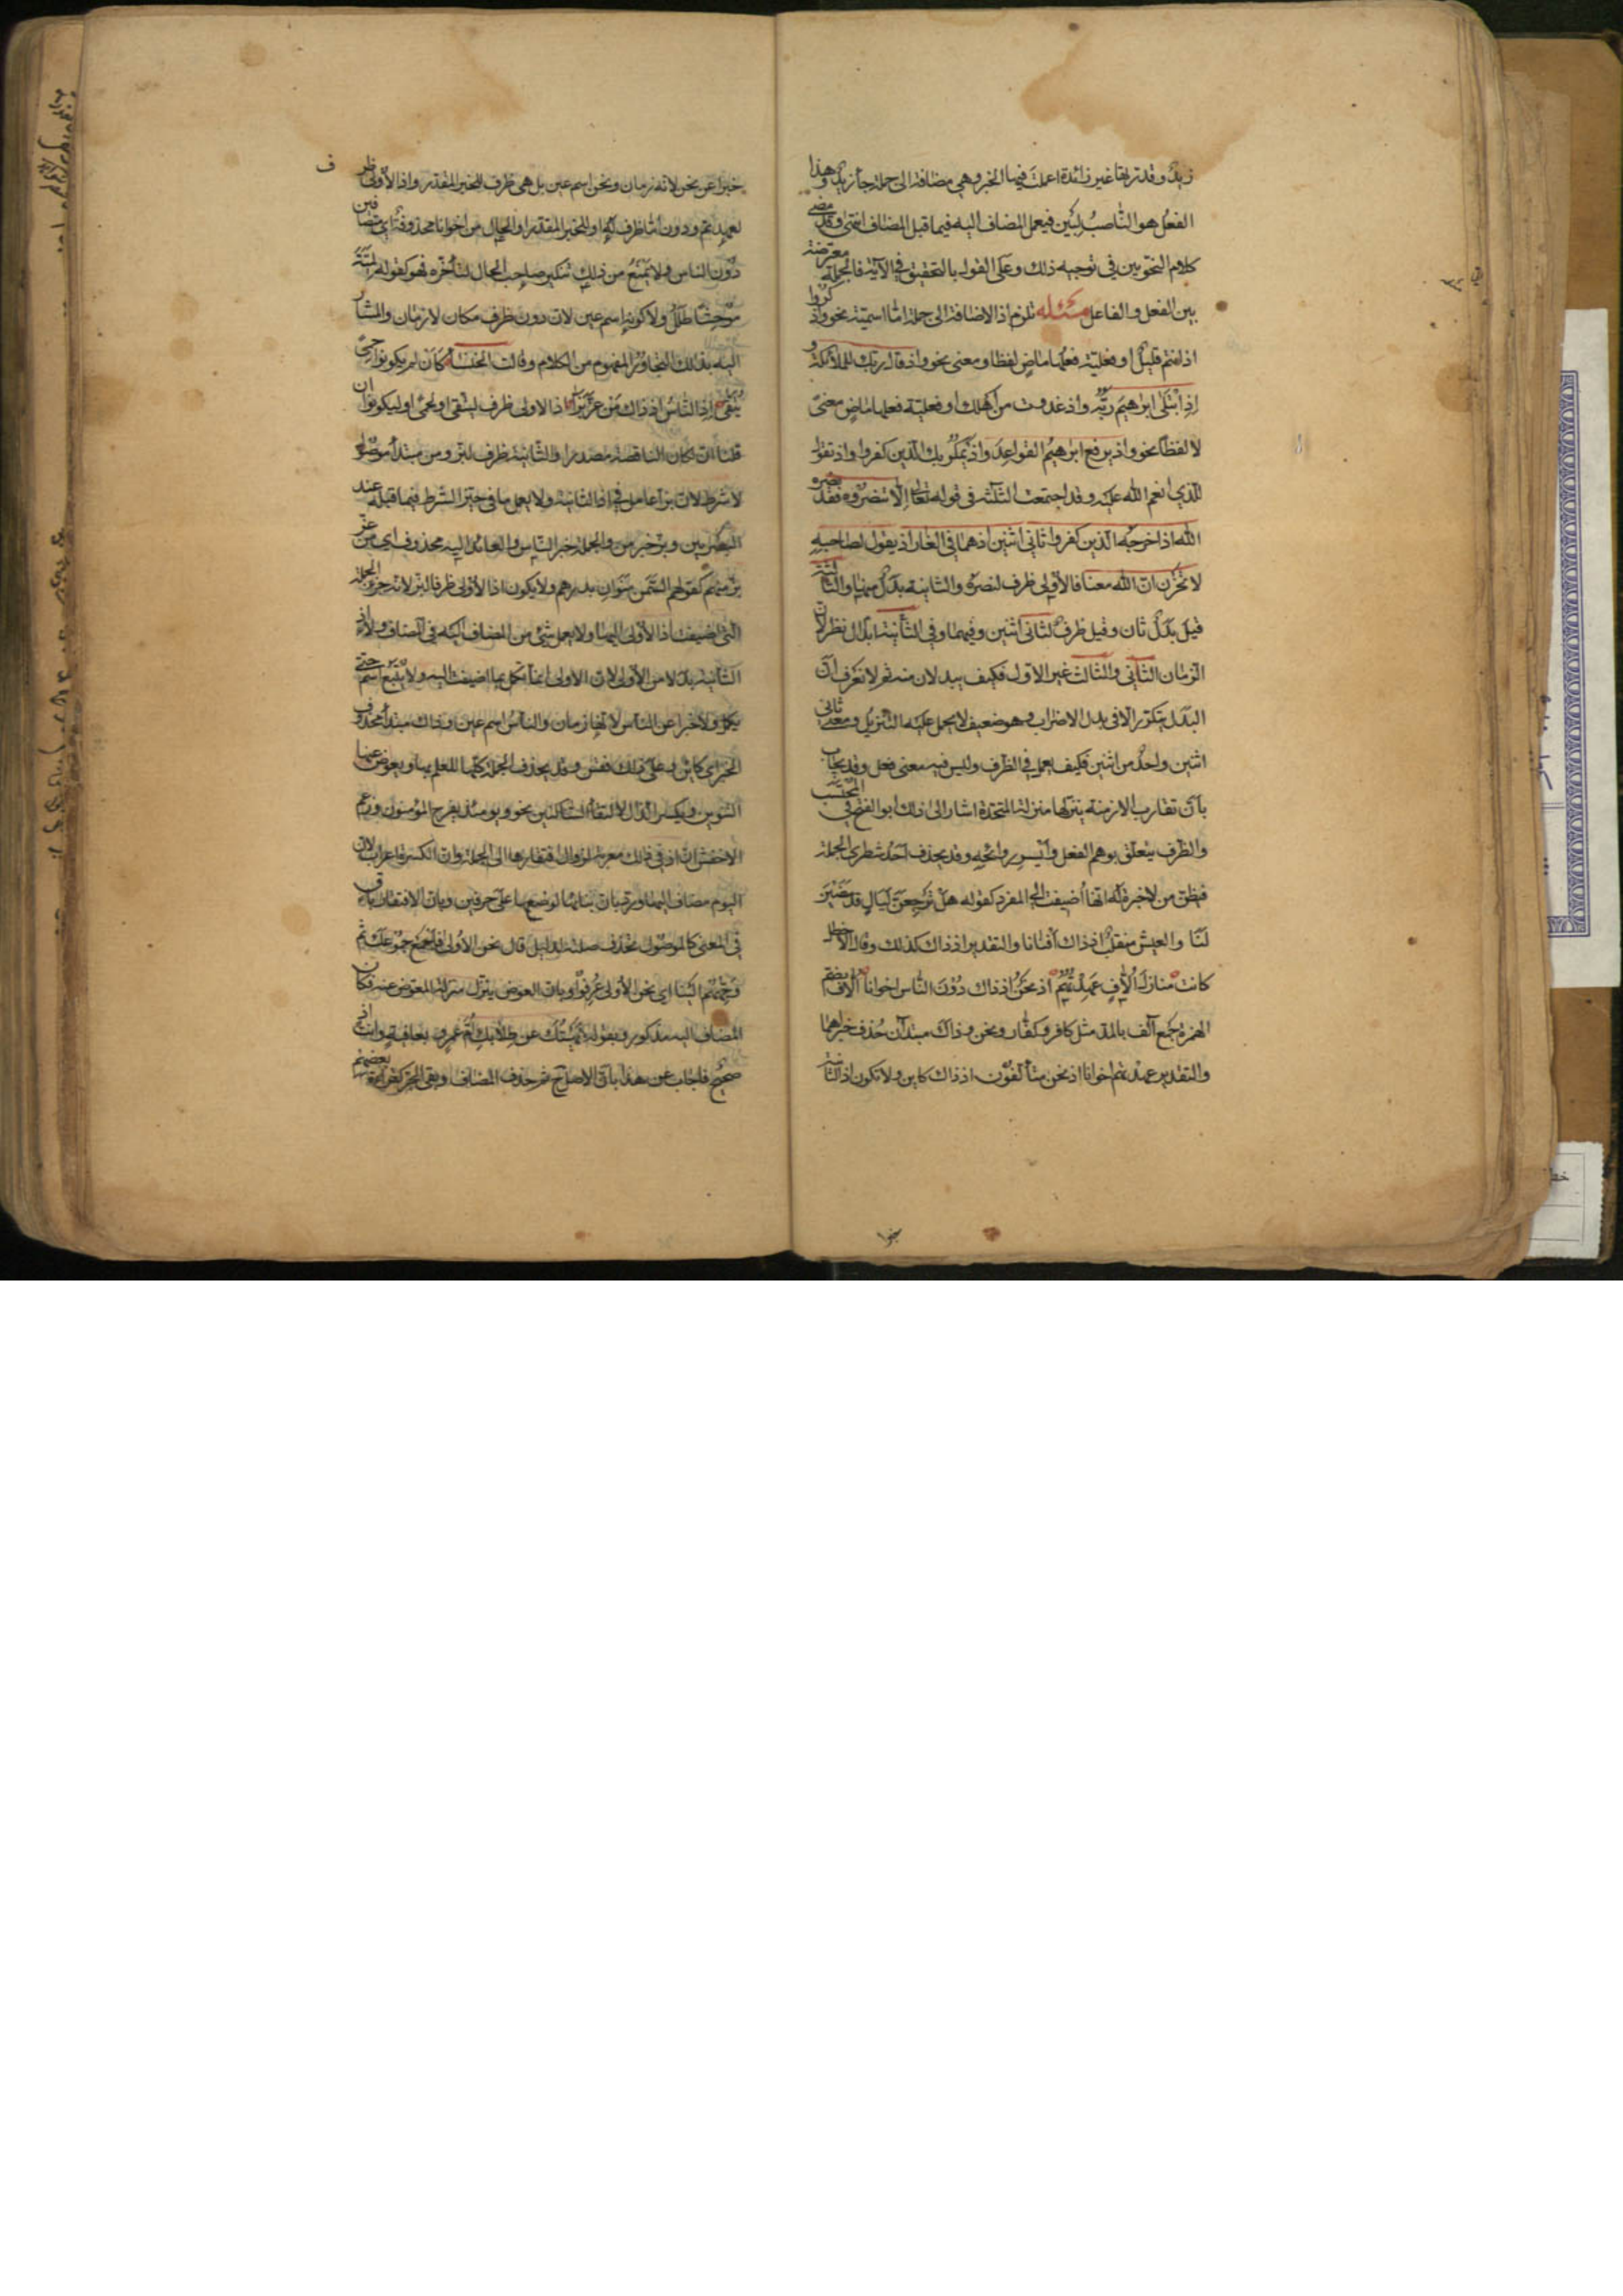 زيد وقد تربقا غير زائدة اعملت فيها الخبر وهي مضافة الى جملة جاء زيد وهذا
الفعل هو الناصب لبين فيعمل المضاف اليه فيما قبل المضاف انتهى وقد مضى
كلام النحويين في توجيه ذلك وعلى القول بالتحقيق في الآية فالجملة معترضة
بين الفعل والفاعل مسئلة تلزم اذ الاضافة الى جملة اما اسمية نحو واذكروا
اذ انتم قليل او فعلية فعلها ماض لفظا ومعنى نحو واذ قال ربك للملائكة و
اذ ابتلى ابرهيم ربه واذ غدوت من اهلك او فعلية فعلها ماض معنى
لا لفظا نحو واذ يرفع ابرهيم القواعد واذ يمكر بك الذين كفروا واذ تقول
للذي انعم الله عليه وقد اجتمعت الثلثة في قوله تعالى الا تنصروه فقد نصره
الله اذ اخرجه الذين كفروا ثاني اثنين اذ هما في الغار اذ يقول لصاحبه
لا تحزن ان الله معنا فالاولى ظرف لنصره والثانية بدل منها والثالثة
قيل بدل ثان وقيل ظرف لثاني اثنين وفيهما وفي الثانية ابدال نظر لان
الزمان الثاني والثالث غير الاول فكيف يبدلان منه ثم لا نعرف ان
البدل يتكرر الا في بدل الاضراب وهو ضعيف لا يحمل عليه التنزيل ومعنى ثاني
اثنين واحد من اثنين فكيف يعمل في الظرف وليس فيه معنى فعل وقد يجاب
بان تقارب الازمنة ينزلها منزلة المتحدة اشار الى ذلك ابو الفتح في المحتسب
والظرف يتعلق بوهم الفعل وايسر روائحه وقد يحذف احد شطري الجملة
فيظن من لا خبرة له انها اضيفت الى المفرد كقوله هل ترجعن ليال قد مضين
لنا والعيش منقلب اذ ذاك افنانا والتقدير اذ ذاك كذلك وقال الاخطل
كانت منازل الاف عهدتهم اذ نحن اذ ذاك دون الناس اخوانا الاف بضم
الهمزة جمع آلف بالمد مثل كافر وكفار ونحن وذاك مبتدآن حذف خبراهما
والتقدير عهدتهم اخوانا اذ نحن متألفون اذ ذاك كاين ولا تكون اذ الثانية
خبرا
خبرا عن نحن لانه زمان ونحن اسم عين بل هي ظرف للخبر المقدر واذ الاولى ظرف
لعهدتهم ودون اما ظرف له او للخبر المقدر او لحال من اخوانا محذوفة اي متصافين
دون الناس ولا يمنع من ذلك تنكير صاحب الحال لتأخره فهو كقوله لمية
موحشا طلل ولا كونه اسم عين لان دون ظرف مكان لا زمان والمشار
اليه بذلك التجاور المفهوم من الكلام وقالت الخنساء كان لم يكونوا حمى
يتقى اذ الناس اذ ذاك من عز بزا اذ الاولى ظرف ليتقى او لحمى او ليكونوا ان
قلنا ان لكان الناقصة مصدرا والثانية ظرف لبز ومن مبتدأ موصول
لا شرط لان بز عامل في اذ الثانية ولا يعمل ما في حيز الشرط فيما قبله عند
البصريين وبز خبر من والجملة خبر الناس والعائد اليه محذوف اي من عز
بز منهم كقولهم السمن منوان بدرهم ولا يكون اذ الاولى ظرفا لبز لانه جزء الجملة
التي اضيفت اذ الاولى اليها ولا يعمل شئ من المضاف اليه في المضاف ولا اذ
الثانية بدلا من الاولى لان الاولى انما تكمل بما اضيفت اليه ولا يتبع اسم حتى
يكمل ولا خبرا عن الناس لانها زمان والناس اسم عين وذاك مبتدأ محذوف
الخبر اي كاين وعلى ذلك فقس وقد يحذف الجملة كلها للعلم بها ويعوض عنها
التنوين ويكسر الذال لالتقاء الساكنين نحو ويومئذ يفرح المؤمنون وزعم
الاخفش ان اذ في ذلك معربة لزوال افتقارها الى الجملة وان الكسرة اعراب لان
اليوم مضاف اليها ورد بان بنائها لوضعها على حرفين وبان الافتقار باق
في المعنى كالموصول تحذف صلته لدليل قال نحن الاولى فاجمع جموعك ثم
وجههم الينا اي نحن الاولى عرفوا وبان العوض ينزل منزلة المعوض عنه فكان
المضاف اليه مذكور وبقوله نهيتك عن طلابك ام عمرو بعافية وانت اذ
صحيح فاجاب عن هذا بان الاصل ح ثم حذف المضاف وبقي الجر كقراءة بعضهم